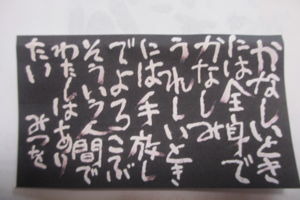 かなしいとき
には全身で
かなしみ
うれしいとき
には手放し
でよろこぶ
そういう人間で
わたしはあり
たい みつを